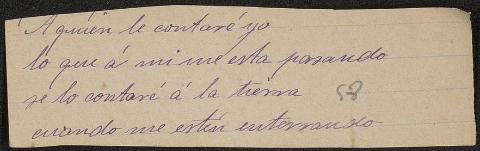 A quien le contaré yo
lo que á mi me esta pasando
se lo contaré á la tierra
58
cuando me estén enterrando